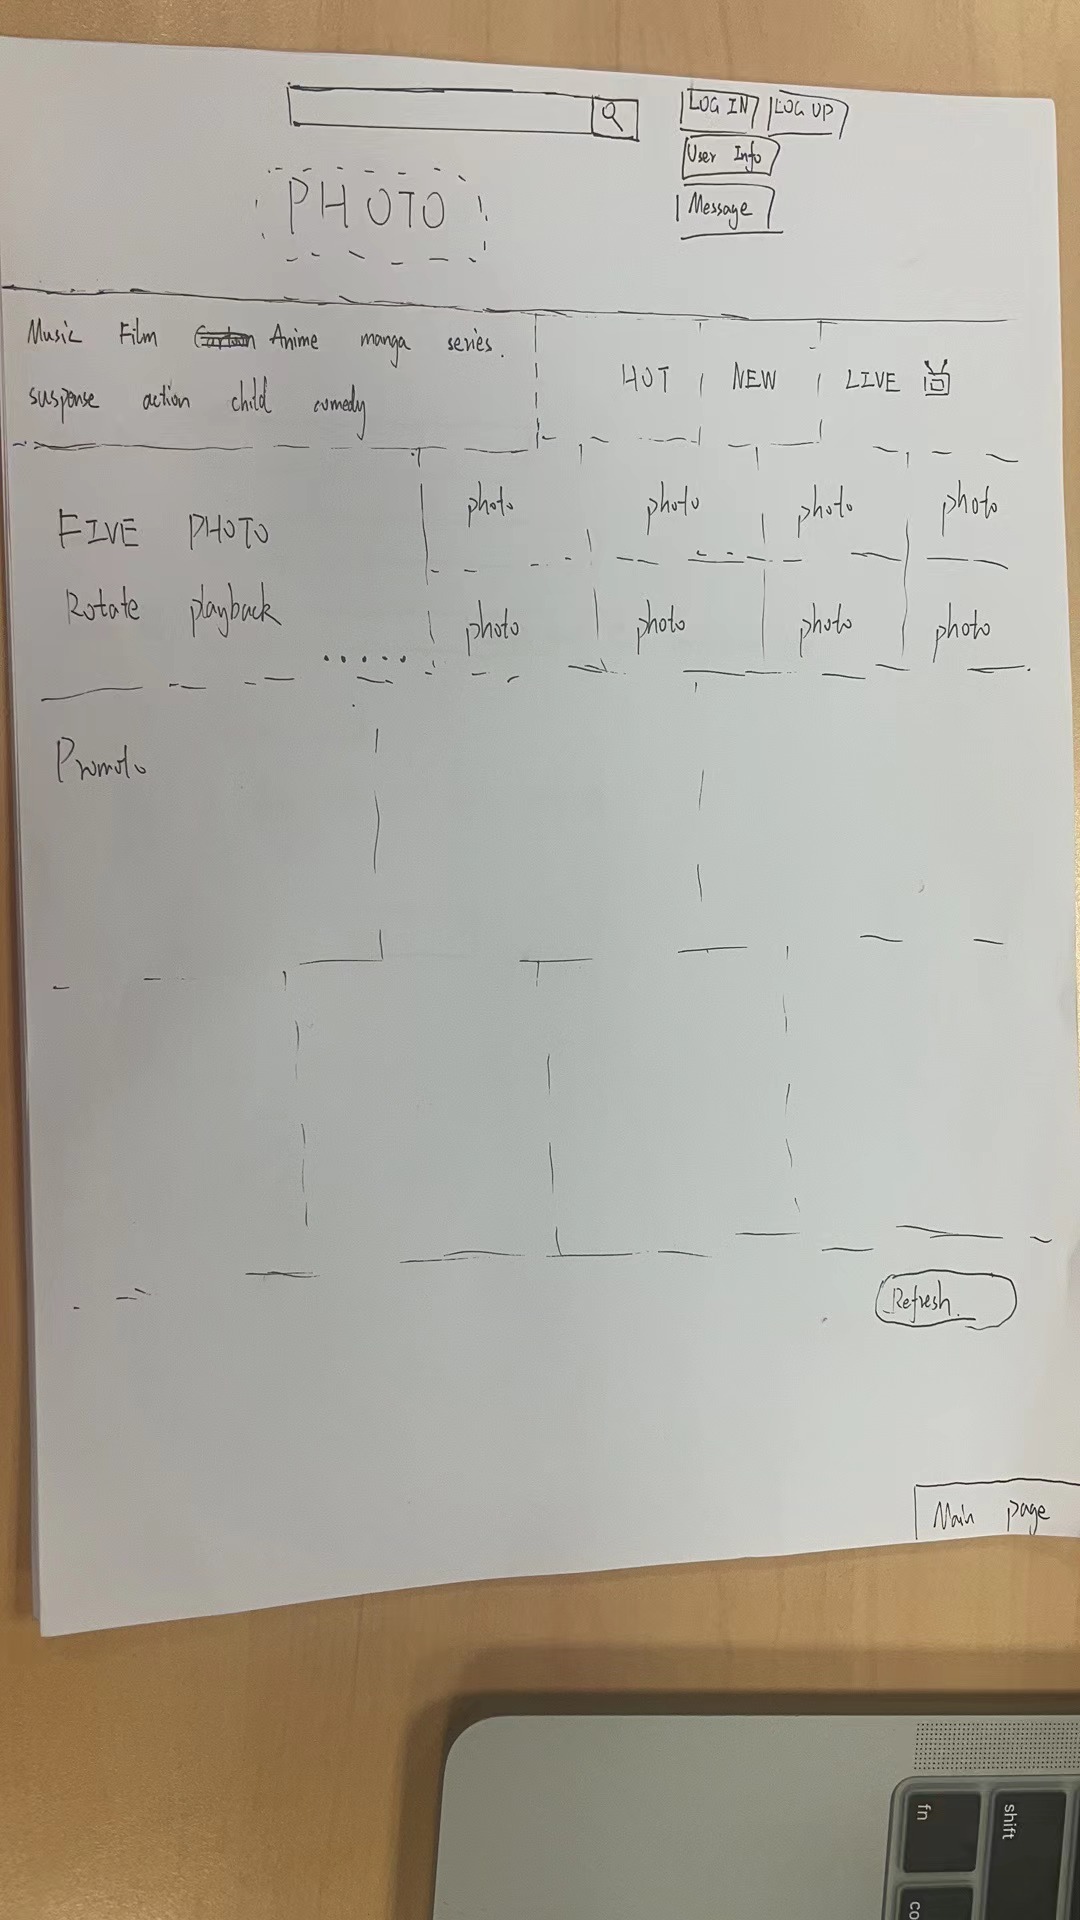 LOG IN LOG UP
User Info
Message
PHOTO
Music Film Anime manga series.
suspense action child comedy
HOT NEW LIVE
FIVE PHOTO
Rotate playback
photo photo photo photo
photo photo photo photo
Promoto
Refresh
Main page
fn
shift
co